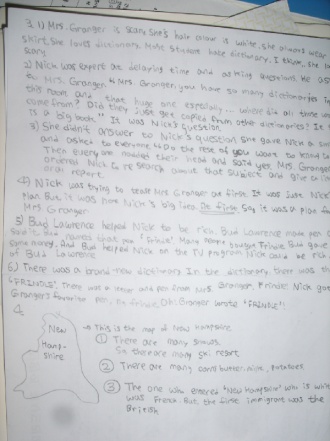 3. 1) Mrs. Granger is scary. She's hair colour is white. She always wear
skirt. She loves dictionary. Most student hate dictionary. I think, she is
scary.
2) Nick was expert at delaying time and asking questions. He as
to Mrs. Granger. "Mrs. Granger, you have so many dictionaries in
this room and that huge one especially... where did all those words
come from? Did they just get copied from other dictionaries? It
is a big book." It was Nick's question.
3) She didn't answer to Nick's question she gave Nick a
and asked to everyone "Do the rest of you want to
Then everyone nodded their head and said yes. Mrs. Granger
ordered Nick to research about that subject and give an
oral report.
4) Nick was trying to tease Mrs Granger at first. It was just Nick's
plan. But it was Nick's big idea. At first, say it was a plan
Mrs Granger.
5) Bud Lawrence helped Nick to be rich. Bud Lawrence made pen
said it's named that pen 'Frindle'. Many people bought Frindle. Bud gave
some money. And Bud helped Nick on the TV program. Nick could be rich
of Bud Lawrence
6) There was a brand-new dictionary. In the dictionary, there was the
"FRINDLE". There was a letter and pen from Mrs. Granger. Nick got
Granger's favorite pen, the frindle. Oh! Granger wrote "FRINDLE"!
4.
New
Hamp-
shire
→ This is the map of New Hampshire
① There are many snows.
So there are many ski resort.
② There are many butter, milk, potatoes.
③ The one who entered 'New Hampshire' who is white
was French. But, the first immigrant was the
British